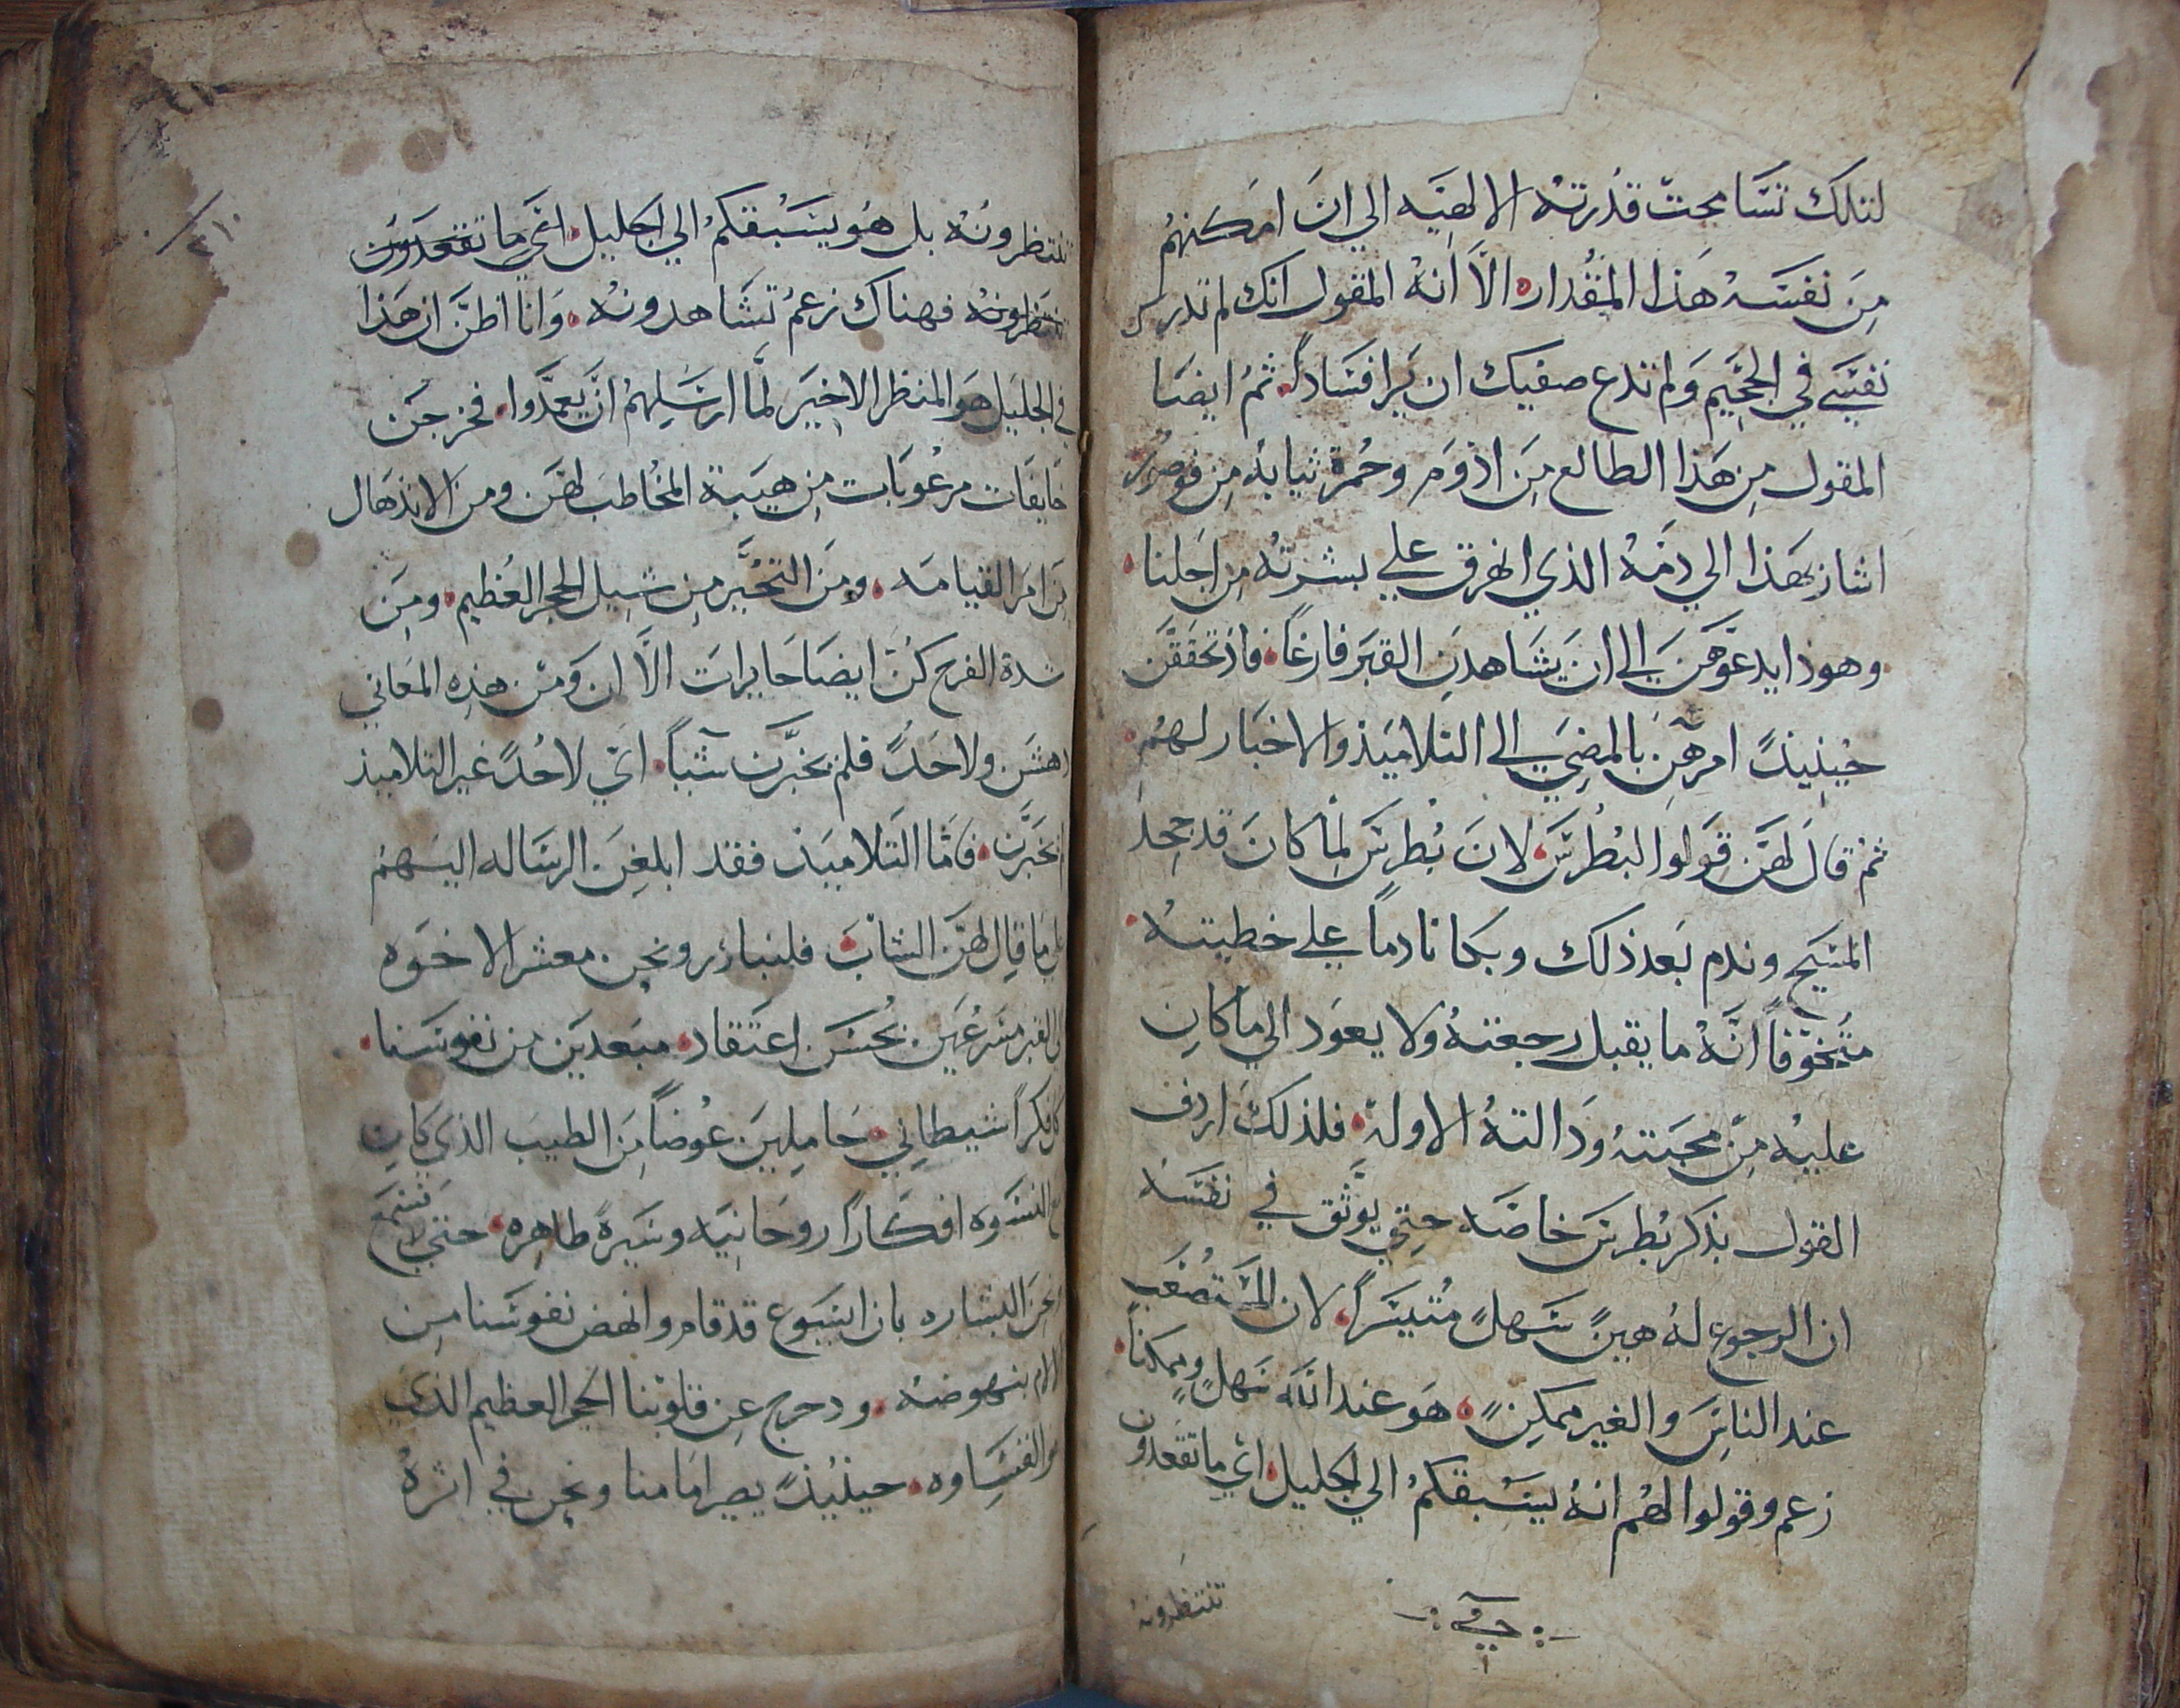 لتلك تسامحت قدرته الالهيه الي ان امكنهم
من نفسه هذا المقدار الا انه المقول انك لم تدرس
نفسي في الجحيم ولم تدع صفيك ان يرا فسادا ثم ايضا
المقول من هذا الطالع من اذوم وحمرة ثيابه من فوصور
اشار بهذا الي دمه الذي انهرق علي بشرته من اجلنا
وهوذا يدعوهن الي ان يشاهدن القبر فارغا فاذ تحققن
حينيذ امرهن بالمضي الي التلاميذ والاخبار لهم
ثم قال لهن قولوا لبطرس لان بطرس لما كان قد جحد
المسيح وندم بعد ذلك وبكا نادما علي خطيته
متخوفا انه ما يقبل رجعته ولا يعود الي ما كان
عليه من محبته ودالته الاولة فلذلك اردف
القول بذكر بطرس خاصه حتي يوثق في نفسه
ان الرجوع له هين سهل متيسرا لان المستصعب
عند الناس والغير ممكن هو عند الله سهل وممكنا
زعم وقولوا لهم انه يسبقكم الي الجليل اي ما تقعدون
تنتظرونه
تنتظرونه بل هو يسبقكم الي الجليل اي ما تقعدون
تنتظرونه فهناك زعم تشاهدونه وانا اظن ان هذا
في الجليل هو المنظر الاخير لما ارسلهم ان يعمدوا فخرجن
خايفات مرعوبات من هيبة المخاطب لهن ومن الانذهال
من امر القيامه ومن التحير من شيل الحجر العظيم ومن
شدة الفرح كن ايضا حايرات الا ان ومن هذه المعاني
دهشن ولا حد فلم يخبرن شيا اي لاحد غير التلاميذ
لم يخبرن فاما التلاميذ فقد ابلغن الرساله اليهم
علي ما قال لهن الشاب فلنبادر ونحن معشر الاخوه
الي القبر مسرعين بحسن اعتقاد مبعدين من نفوسنا
كل فكرا شيطاني حاملين عوضا من الطيب الذي كان
مع النسوه افكارا روحانيه وسيرة طاهره حتي لا نسمع
نحن البشاره بان ايسوع قد قام وانهض نفوسنا من
الالام بنهوضه ودحرج عن قلوبنا الحجر العظيم الذي
هو القساوه حينيذ يصير امامنا ونحن في اثره